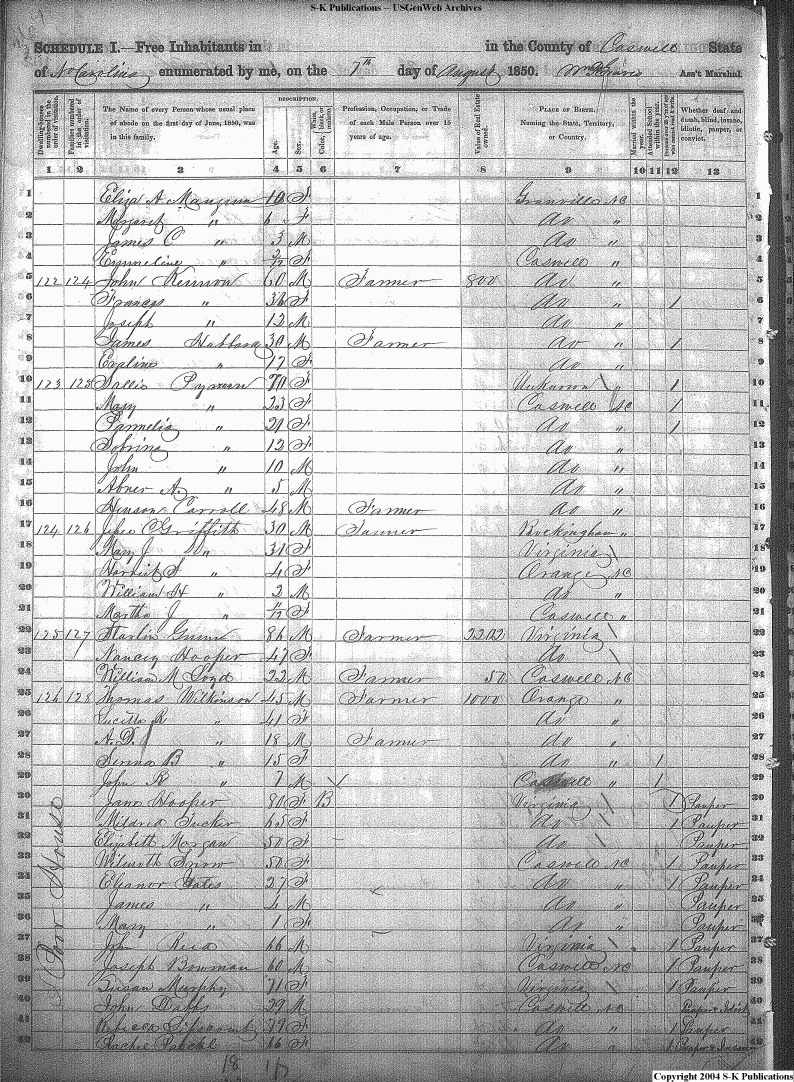 S-K Publications -- USGenWeb Archives
SCHEDULE I.—Free Inhabitants in in the County of Caswell State
of No Carolina enumerated by me, on the 7th day of August 1850. Ass't Marshal.
Dwelling-houses numbered in the order of visitation.
Families numbered in the order of visitation.
The Name of every Person whose usual place of abode on the first day of June, 1850, was in this family.
DESCRIPTION.
Age.
Sex.
Color, White, black, or mulatto.
Profession, Occupation, or Trade of each Male Person over 15 years of age.
Value of Real Estate owned.
PLACE OF BIRTH. Naming the State, Territory, or Country.
Married within the year.
Attended School within the year.
Whether deaf and dumb, blind, insane, idiotic, pauper, or convict.
1 2 3 4 5 6 7 8 9 10 11 12 13
1 Eliza A Mangum F Granville NC 1
2 Margaret " 6 F Do " 2
3 James C " 3 M Do " 3
4 Emmeline " F Caswell " 4
5 122 124 John Kennon 60 M Farmer 800 Do " 5
6 Frances " 36 F Do " 1 6
7 Joseph " 12 M Do " 7
8 James Hubbard 30 M Farmer Do " 1 8
9 Evaline " 17 F Do " 9
10 123 125 Sallie 70 F Unknown " 1 10
11 Mary " 23 F Caswell NC 1 11
12 Parmelia " 21 F Do " 1 12
13 Sobrina " 12 F Do " 13
14 John " 10 M Do " 14
15 Abner A. " 5 M Do " 15
16 Henson Carroll 48 M Farmer Do " 16
17 124 126 C Griffith 30 M Farmer Rockingham " 17
18 Mary J " 31 F Virginia 18
19 Harriet F " 4 F Orange NC 19
20 William H " 2 M Do " 20
21 Martha J " F Caswell " 21
22 125 127 Starlin Gunn 81 M Farmer 2202 Virginia 22
23 Nancy Hooper 47 F Do 23
24 William M Loyd 22 M Farmer 50 Caswell NC 24
25 126 128 Thomas Wilkinson 45 M Farmer 1000 Orange " 25
26 " 41 F Do " 26
27 A. D. " 18 M Farmer Do " 27
28 Senna B " 15 F Do " 1 28
29 John R " 7 M Caswell " 1 29
30 Jane Hooper 80 F B Virginia 1 Pauper 30
31 Mildred Tucker 65 F Do 1 Pauper 31
32 Elizabeth Morgan 50 F Do Pauper 32
33 Snow 50 F Caswell NC 1 Pauper 33
34 Eleanor Yates 27 F Do " 1 Pauper 34
35 James " 4 M Do " Pauper 35
36 Mary " 1 F Do " Pauper 36
37 John Rice 66 M Virginia 1 Pauper 37
38 Joseph Bowman 60 M Caswell NC 1 Pauper 38
39 Susan Murphy 71 F Virginia 1 Pauper 39
40 John Dabbs 29 M Caswell NC Pauper & Idiot 40
41 Lipscomb 77 F Do " 1 Pauper 41
42 16 F Do " 1 Pauper & 42
Poor House
18
Copyright 2004 S-K Publications